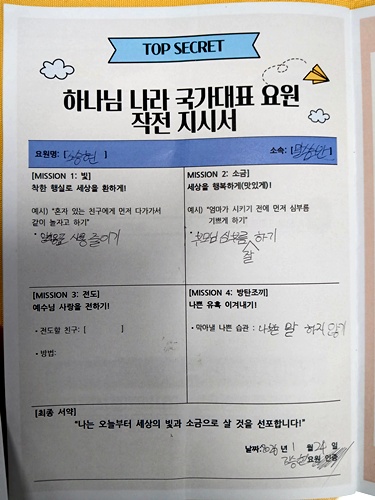 TOP SECRET
하나님 나라 국가대표 요원
작전 지시서
요원명: [ ] 소속: [ ]
[MISSION 1: 빛]
착한 행실로 세상을 환하게!
예시) "혼자 있는 친구에게 먼저 다가가서
같이 놀자고 하기"
· 사용 줄이기
[MISSION 2: 소금]
세상을 행복하게(맛있게)!
예시) "엄마가 시키기 전에 먼저 심부름
기쁘게 하기"
· 부모님 심부름 하기
잘
[MISSION 3: 전도]
예수님 사랑을 전하기!
· 전도할 친구: [ ]
· 방법:
[MISSION 4: 방탄조끼]
나쁜 유혹 이겨내기!
· 막아낼 나쁜 습관 : 나쁜 말 하지 않기
[최종 서약]
"나는 오늘부터 세상의 빛과 소금으로 살 것을 선포합니다!"
날짜: 2026 년 1 월 24 일
요원 인증